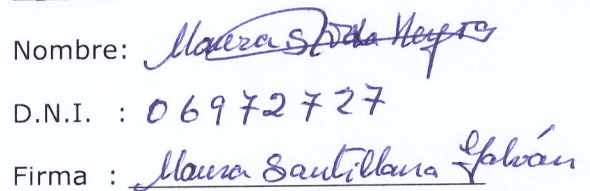 Nombre: Maura
D.N.I. : 06972727
Firma : Maura Santillana Galván